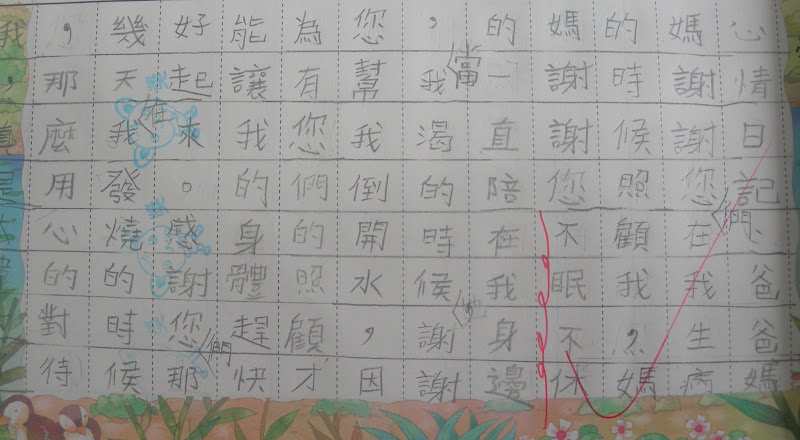 心情日記、爸爸媽
媽謝謝您們在我生病
的時候照顧我，媽
媽謝謝您不眠不休
的一直陪在我身邊
，當我渴的時候謝謝
您幫我倒開水，因
為有您們的照顧才
能讓我的身體趕快
好起來。感謝您們那
幾天在我發燒的時候
，那麼用心的對待
我，